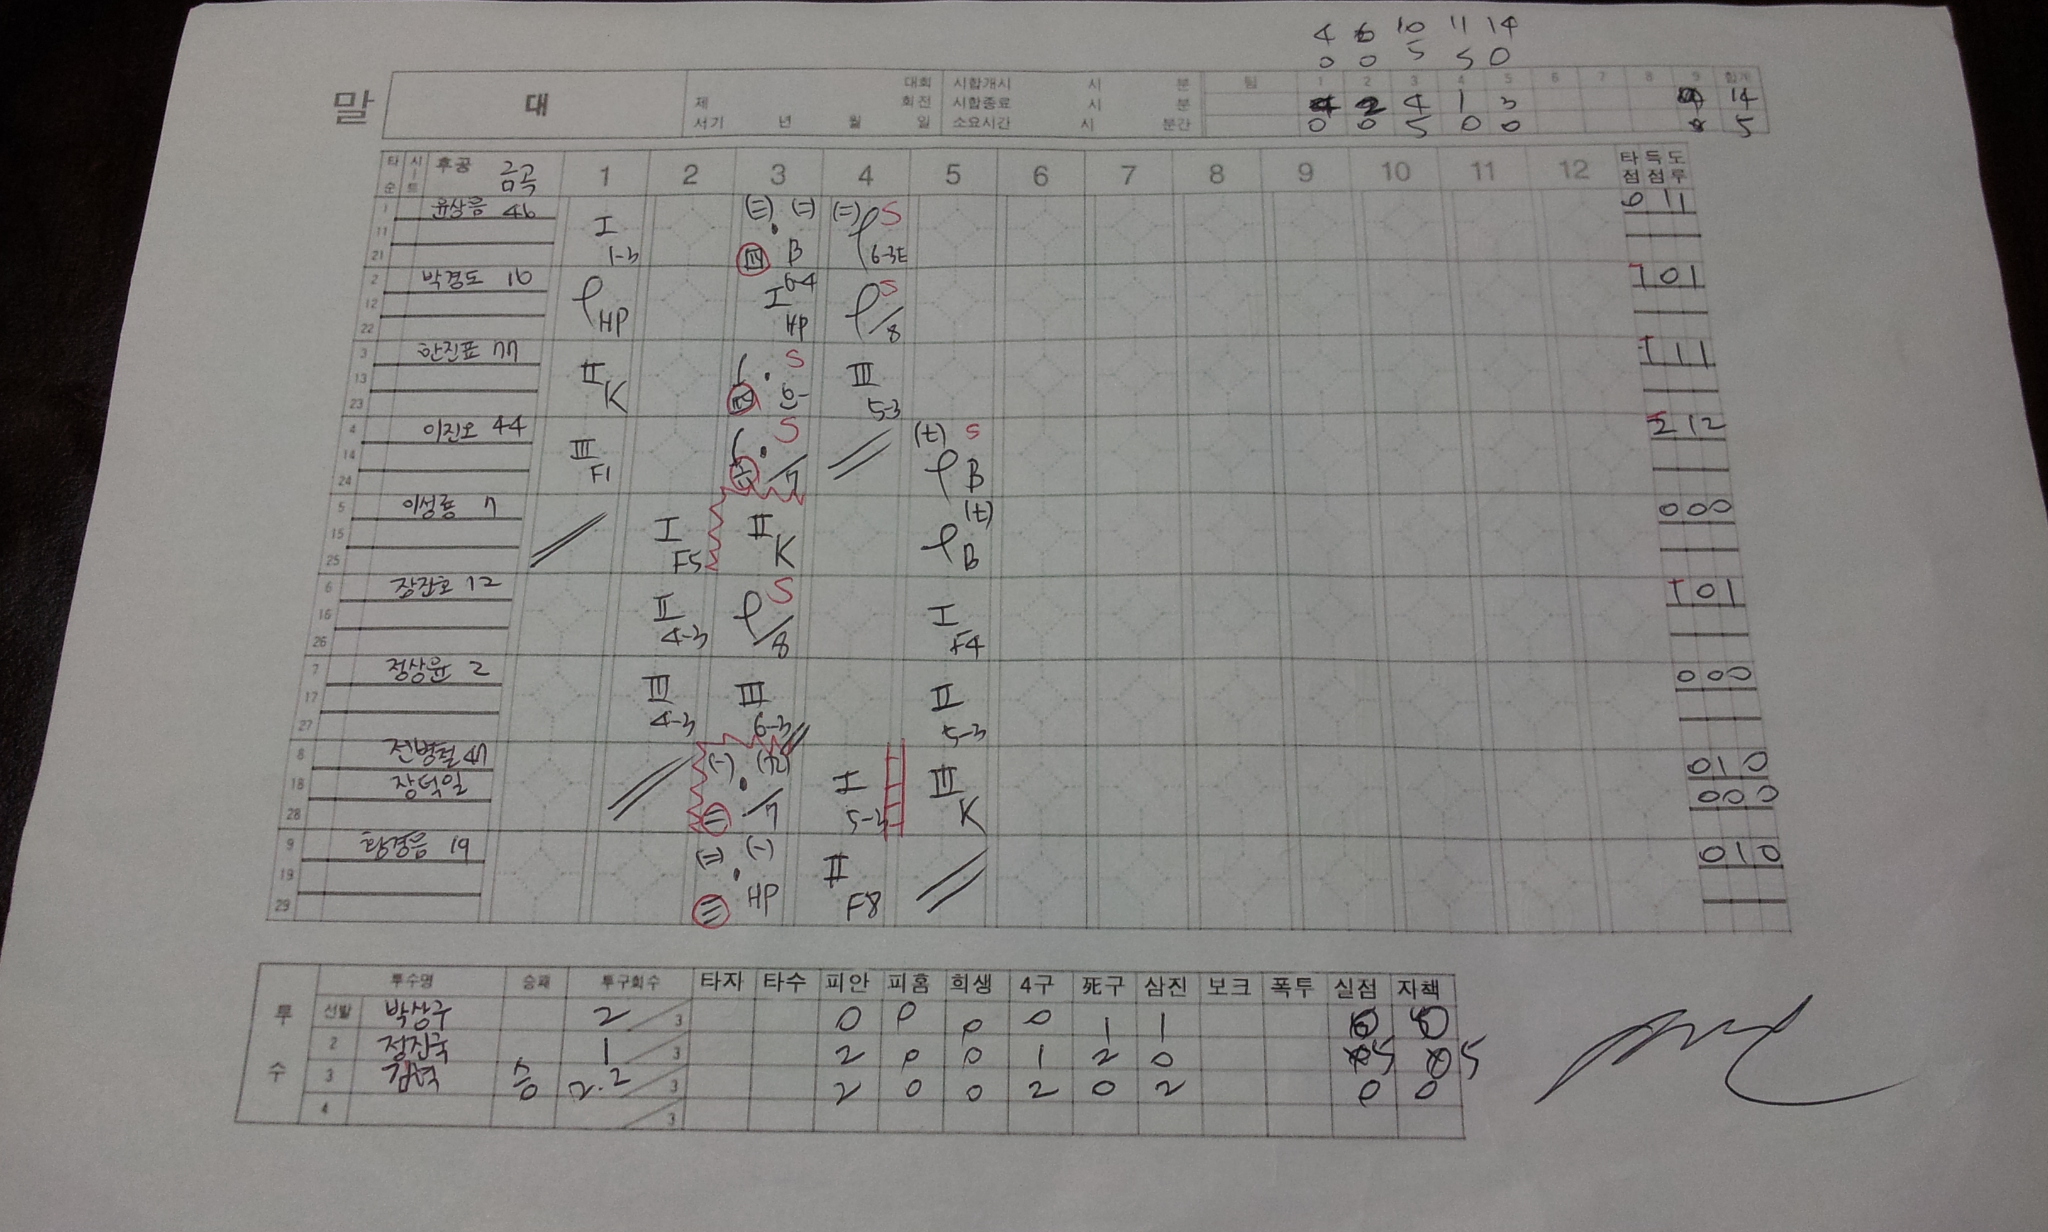 4 6 10 11 14
0 0 5 5 0
말 대 제 대회 회전 서기 년 월 일 시합개시 시 분 시합종료 시 분 소요시간 시 분간 팀 1 2 3 4 5 6 7 8 9 합계
4 2 4 1 3 14
0 0 5 0 0 5
타순 시트 후공 금곡 1 2 3 4 5 6 7 8 9 10 11 12 타점 득점 도루
1 11 21 윤상음 46 I 1-3 B S 6-3E 0 1 1
2 12 22 박경도 16 HP I 6-4 HP S /8 1 0 1
3 13 23 한진표 77 II K S 6- III 5-3 1 1 1
4 14 24 이진오 44 III F1 S /7 S B 2 1 2
5 15 25 이성룡 7 I F5 II K B 0 0 0
6 16 26 장잔호 12 II 4-3 S /8 I F4 1 0 1
7 17 27 정상윤 2 III 4-3 III 6-3 II 5-3 0 0 0
8 18 28 전병철 47 /7 I 5-3 III K 0 1 0
장덕일 0 0 0
9 19 29 황경음 19 HP II F8 0 1 0
투수 투수명 승패 투구회수 타자 타수 피안 피홈 희생 4구 死구 삼진 보크 폭투 실점 자책
선발 박상구 2 /3 0 0 0 0 1 1 0 0
2 정진국 1 /3 2 0 0 1 2 0 5 5
3 승 2.2 /3 2 0 0 2 0 2 0 0
4 /3